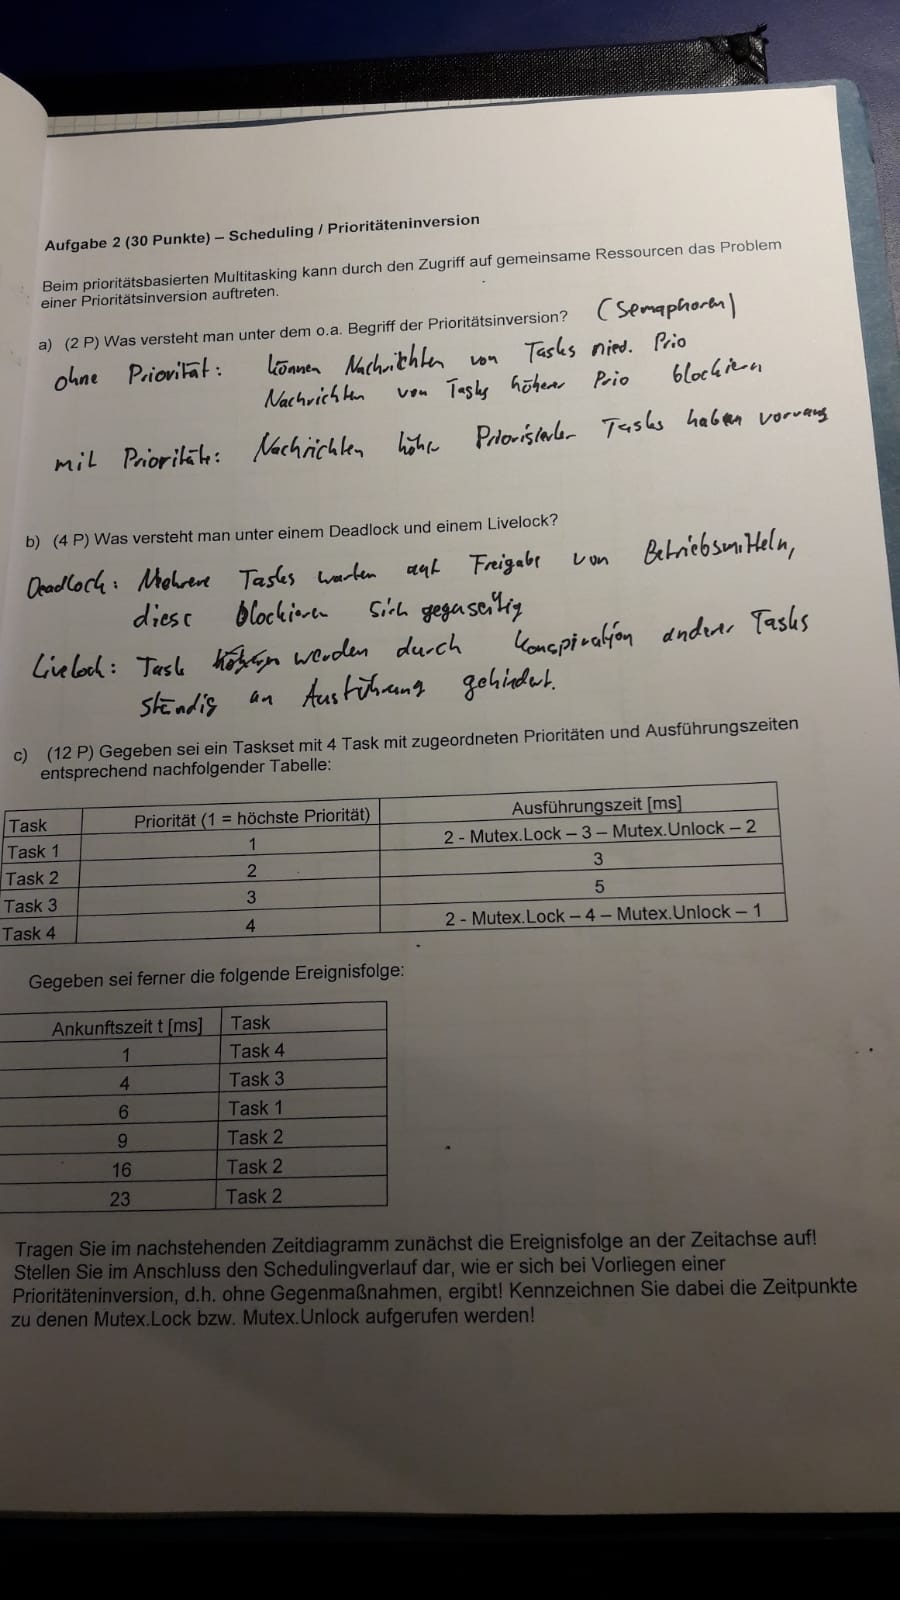 Aufgabe 2 (30 Punkte) – Scheduling / Prioritäteninversion
Beim prioritätsbasierten Multitasking kann durch den Zugriff auf gemeinsame Ressourcen das Problem
einer Prioritätsinversion auftreten.
a) (2 P) Was versteht man unter dem o.a. Begriff der Prioritätsinversion? (Semaphoren)
ohne Priorität: können Nachrichten von Tasks nied. Prio
Nachrichten von Tasks höherer Prio blockieren
mit Priorität: Nachrichten höher Priorisierter Tasks haben vorrang
b) (4 P) Was versteht man unter einem Deadlock und einem Livelock?
Deadlock: Mehrere Tasks warten auf Freigabe von Betriebsmitteln,
diese blockieren sich gegenseitig
Livelock: Task werden durch Konspiration anderer Tasks
ständig an Ausführung gehindert.
c) (12 P) Gegeben sei ein Taskset mit 4 Task mit zugeordneten Prioritäten und Ausführungszeiten
entsprechend nachfolgender Tabelle:
Task Priorität (1 = höchste Priorität) Ausführungszeit [ms]
Task 1 1 2 - Mutex.Lock – 3 – Mutex.Unlock – 2
Task 2 2 3
Task 3 3 5
Task 4 4 2 - Mutex.Lock – 4 – Mutex.Unlock – 1
Gegeben sei ferner die folgende Ereignisfolge:
Ankunftszeit t [ms] Task
1 Task 4
4 Task 3
6 Task 1
9 Task 2
16 Task 2
23 Task 2
Tragen Sie im nachstehenden Zeitdiagramm zunächst die Ereignisfolge an der Zeitachse auf!
Stellen Sie im Anschluss den Schedulingverlauf dar, wie er sich bei Vorliegen einer
Prioritäteninversion, d.h. ohne Gegenmaßnahmen, ergibt! Kennzeichnen Sie dabei die Zeitpunkte
zu denen Mutex.Lock bzw. Mutex.Unlock aufgerufen werden!